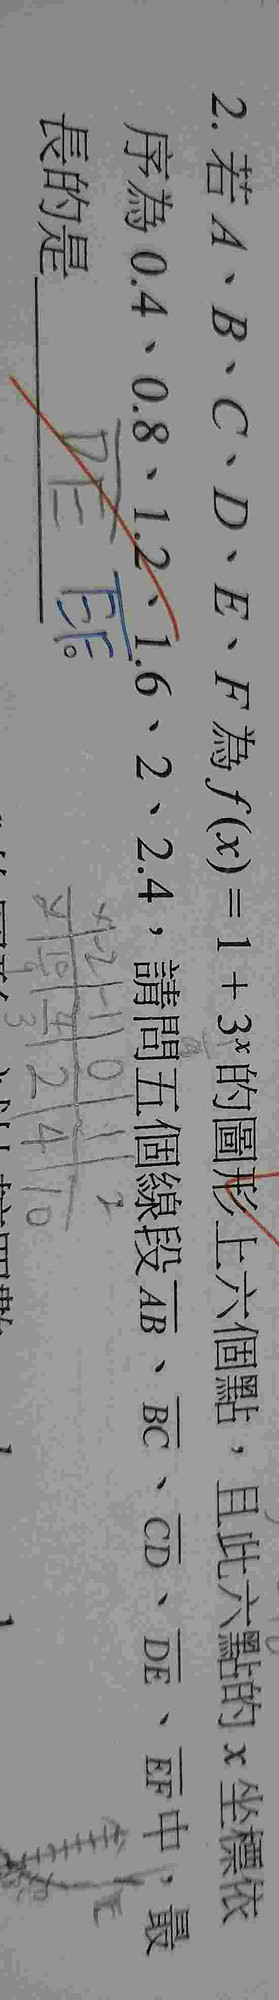 2. 若 A、B、C、D、E、F 為 f(x) = 1 + 3ˣ 的圖形上六個點，且此六點的 x 坐標依
序為 0.4、0.8、1.2、1.6、2、2.4，請問五個線段 AB、BC、CD、DE、EF 中，最
長的是
DE EF。
x -2 -1 0 1 2
y 10/9 4/3 2 4 10